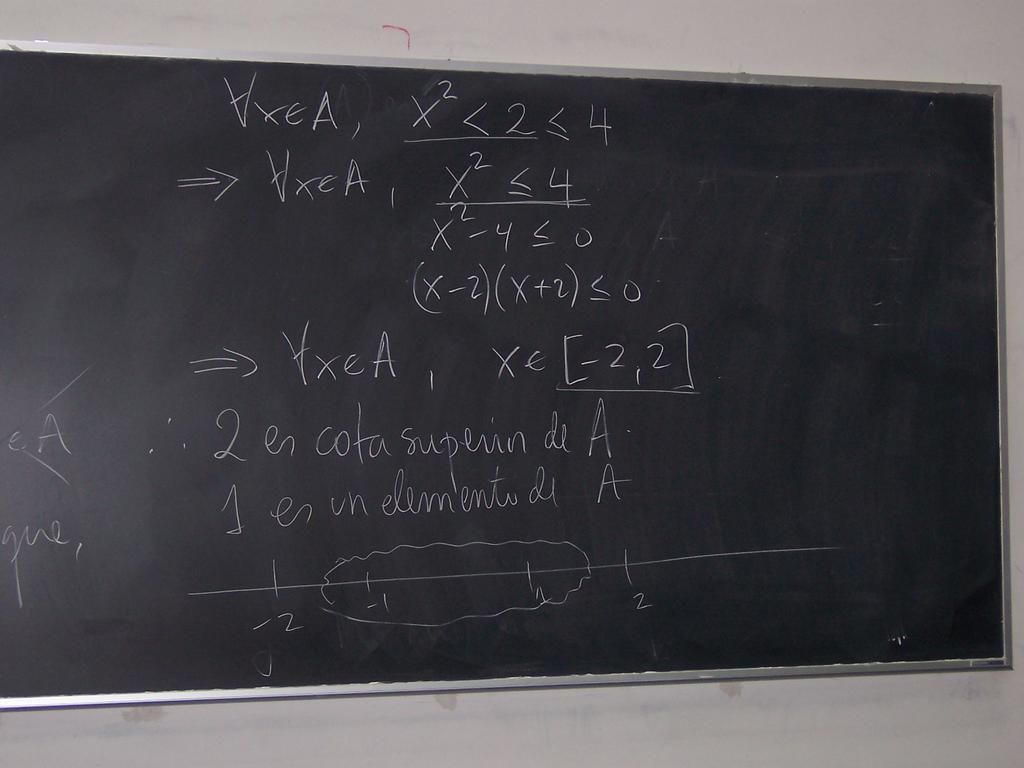 ∀x∈A, x² < 2 ≤ 4
⇒ ∀x∈A, x² ≤ 4
x²-4 ≤ 0
(x-2)(x+2) ≤ 0
⇒ ∀x∈A, x∈ [-2,2]
∈A
∴ 2 es cota superior de A.
1 es un elemento de A
que,
-2 -1 1 2